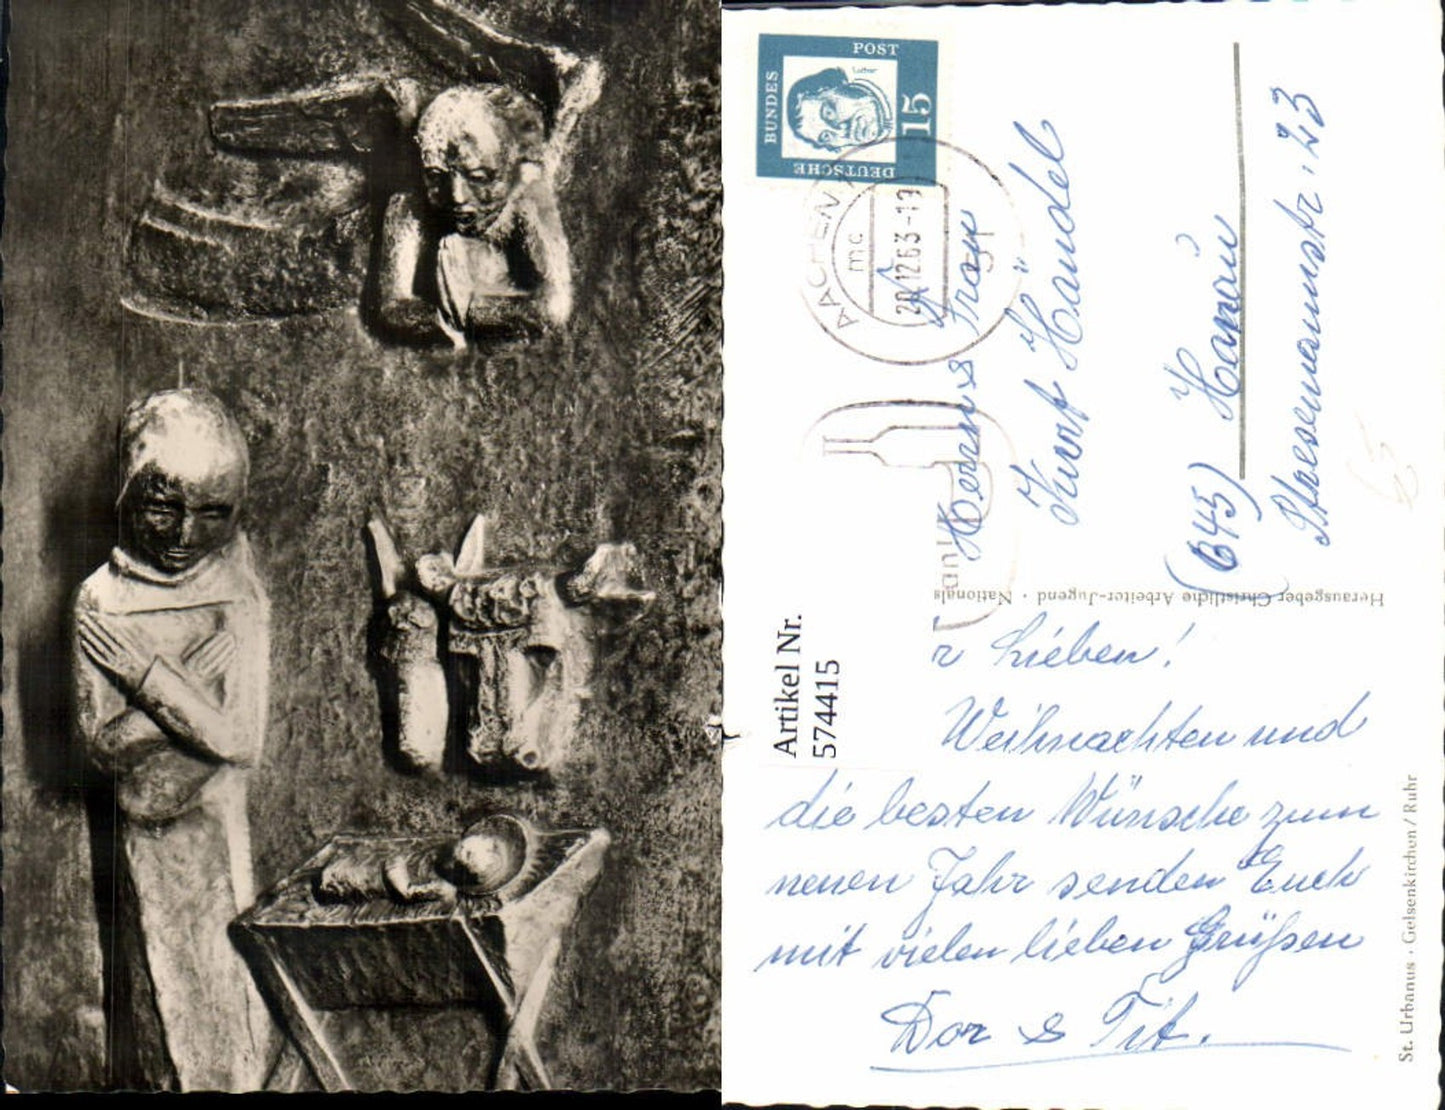 DEUTSCHE
BUNDES
POST
15
Luther
AACHEN 1
mc
20.12.63-19
Herrn & Frau
Kurt Händel
(645) Hanau
Stresemannstr. 23
Herausgeber Christliche Arbeiter-Jugend · Nationals
Artikel Nr.
574415
r Lieben!
Weihnachten und
die besten Wünsche zum
neuen Jahr senden Euch
mit vielen lieben Grüßen
Dor & Tit.
St. Urbanus · Gelsenkirchen / Ruhr